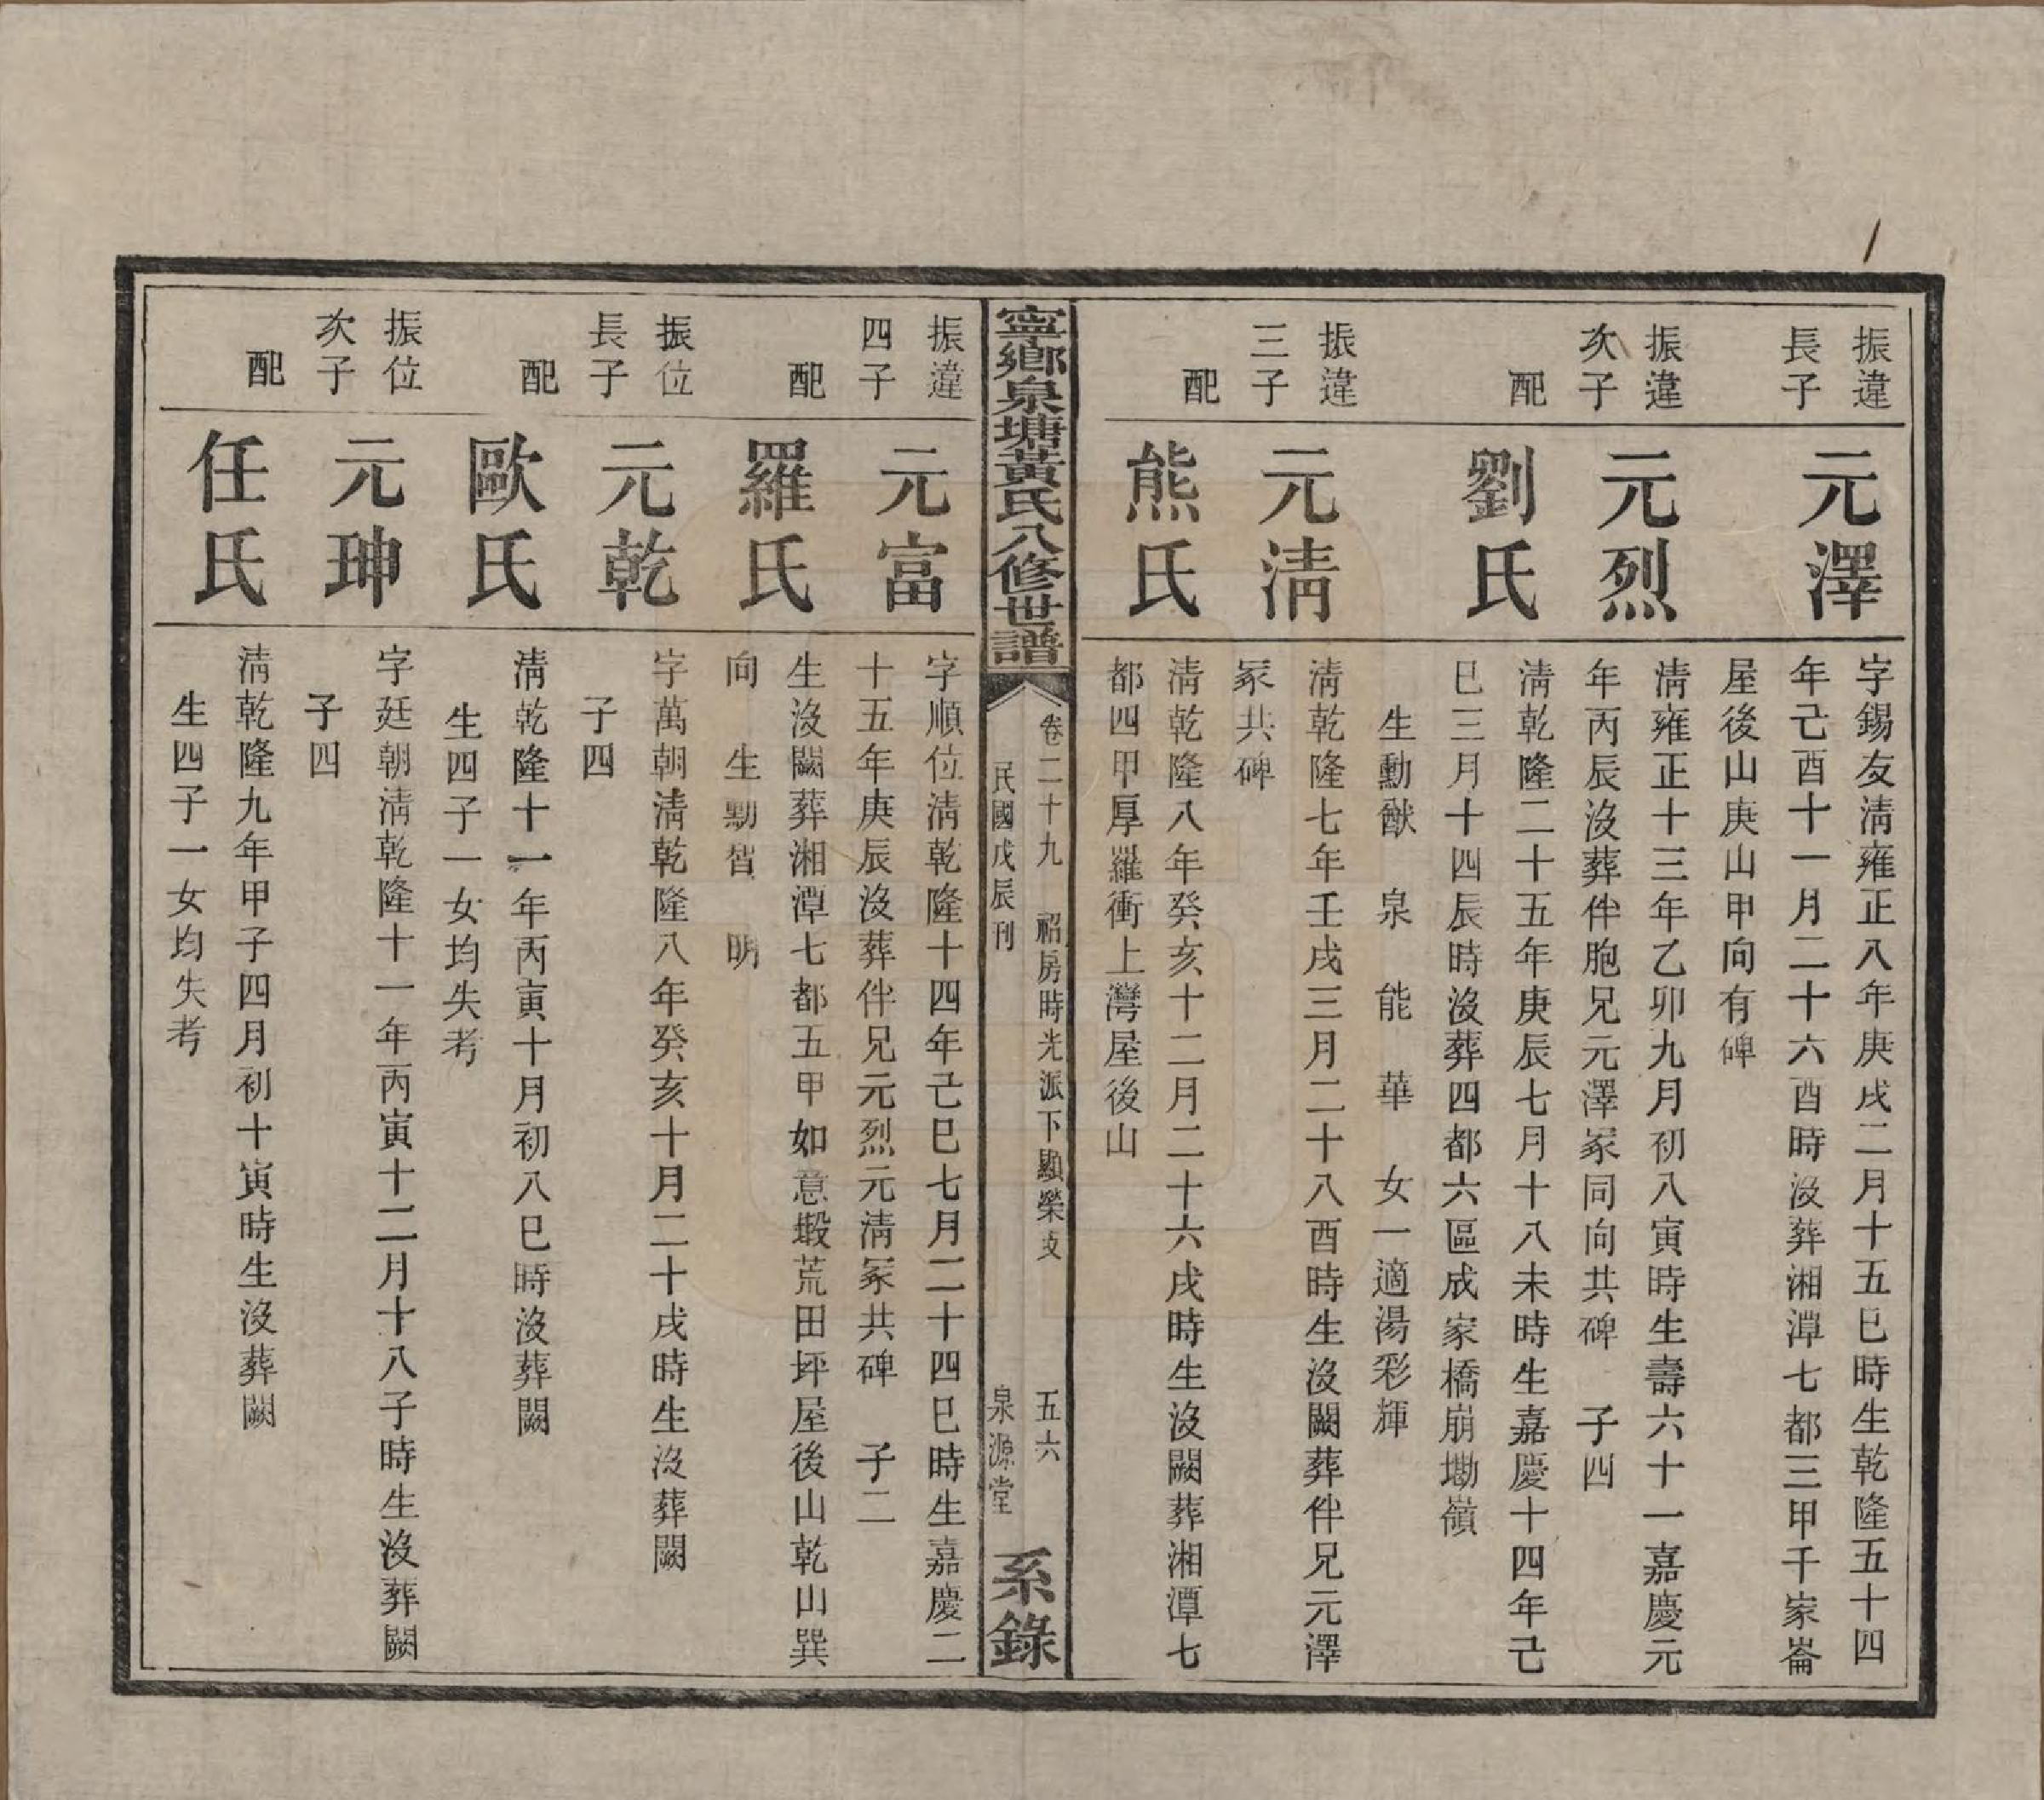 振違
長子
元澤
字錫友淸雍正八年庚戌二月十五巳時生乾隆五十四
年己酉十一月二十六酉時沒葬湘潭七都三甲千家崙
屋後山庚山甲向有碑
振違
次子
元烈
淸雍正十三年乙卯九月初八寅時生壽六十一嘉慶元
年丙辰沒葬伴胞兄元澤冢同向共碑　子四
配
劉氏
淸乾隆二十五年庚辰七月十八未時生嘉慶十四年己
巳三月十四辰時沒葬四都六區成家橋崩墈嶺
生勳猷　泉　能　華　女一適湯彩輝
振違
三子
元淸
淸乾隆七年壬戌三月二十八酉時生沒闕葬伴兄元澤
冢共碑
配
熊氏
淸乾隆八年癸亥十二月二十六戌時生沒闕葬湘潭七
都四甲厚羅衝上灣屋後山
寧鄉泉塘黃氏八修世譜
卷二十九　祒房時光派下顯榮支　五六
民國戊辰刊　泉源堂
系錄
振違
四子
元富
字順位淸乾隆十四年己巳七月二十四巳時生嘉慶二
十五年庚辰沒葬伴兄元烈元淸冢共碑　子二
配
羅氏
生沒闕葬湘潭七都五甲如意塅荒田坪屋後山乾山巽
向　生勳哲　明
振位
長子
元乾
字萬朝淸乾隆八年癸亥十月二十戌時生沒葬闕
子四
配
歐氏
淸乾隆十一年丙寅十月初八巳時沒葬闕
生四子一女均失考
振位
次子
元珅
字廷朝淸乾隆十一年丙寅十二月十八子時生沒葬闕
子四
配
任氏
淸乾隆九年甲子四月初十寅時生沒葬闕
生四子一女均失考